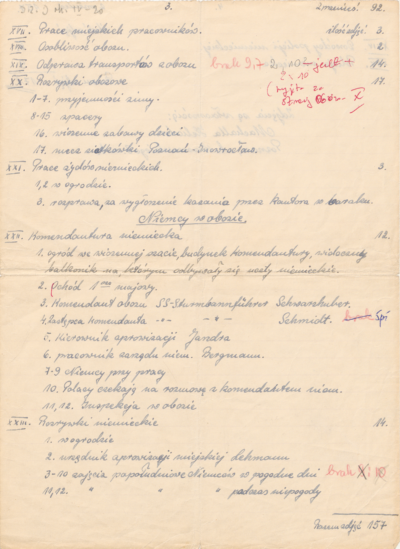 3.
Z przeniesienia 92.
XVII. Prace miejskich pracowników. ilość zdjęć: 3.
XVIII. Osobliwość obozu. 2.
XIX. Odprawa transportów z obozu 14.
brak 9,7 2 i 10 - jest
XX. Rozrywki obozowe 17.
2 i 10
1-7. przyjemności zimy.
8-15 spacery
16. wiosenne zabawy dzieci
17. mecz siatkówki Poznań-Inowrocław.
XXI. Prace żydów niemieckich. 3.
1,2 w ogrodzie.
3. rozprawa, za wygłoszenie kazania przez Kantora w baraku.
Niemcy w obozie.
XXII. Komendantura niemiecka 12.
1. ogród w wiosennej szacie, budynek Komendantury, widoczny
balkonik na którym odbywały się uczty niemieckie.
2. Pochód 1-szo majowy.
3. Komendant obozu SS-Sturmbannführer Schwarzhuber.
4. Zastępca Komendanta -"- -"- Schmidt. brak
5. Kierownik aprowizacji Jandra
6. pracownik zarządu niem. Bergmann.
7-9 Niemcy przy pracy
10. Polacy czekają na rozmowę z komendantem niem.
11,12. Inspekcja w obozie
XXIII. Rozrywki niemieckie 14.
1. w ogrodzie
2. urzędnik aprowizacji miejskiej
3-10 zajęcia popołudniowe Niemców w pogodne dni brak
11,12. " " " podczas niepogody
157